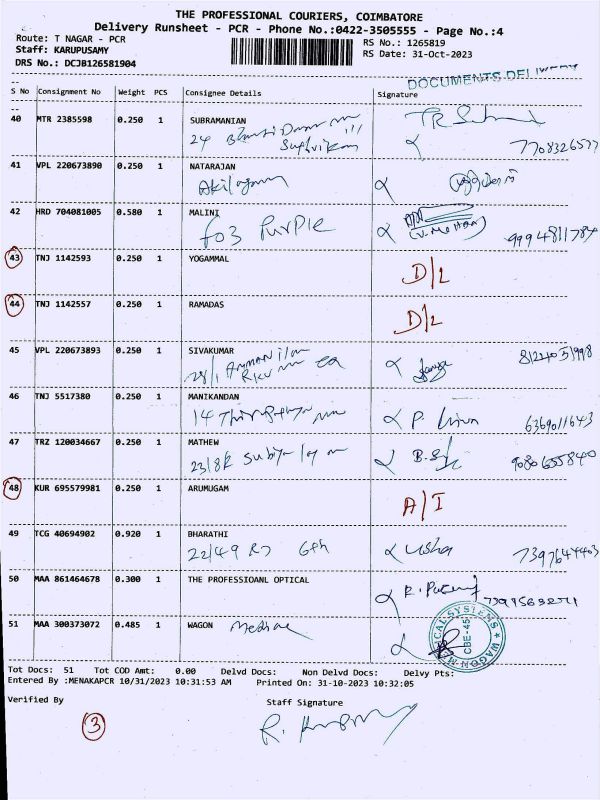 THE PROFESSIONAL COURIERS, COIMBATORE
Delivery Runsheet - PCR - Phone No.:0422-3505555 - Page No.:4
Route: T NAGAR - PCR RS No.: 1265819
Staff: KARUPUSAMY RS Date: 31-Oct-2023
DRS No.: DCJB126581904
DOCUMENTS DELIVERY
S No Consignment No Weight PCS Consignee Details Signature
40 MTR 2385598 0.250 1 SUBRAMANIAN
24 7708326577
41 VPL 220673890 0.250 1 NATARAJAN
42 HRD 704081005 0.580 1 MALINI
fo3 Purple (V. Mohan) 9994811784
43 TNJ 1142593 0.250 1 YOGAMMAL
D/L
44 TNJ 1142557 0.250 1 RAMADAS
D/L
45 VPL 220673893 0.250 1 SIVAKUMAR
28/1 AMMAN
46 TNJ 5517380 0.250 1 MANIKANDAN
14 P. 6369011643
47 TRZ 120034667 0.250 1 MATHEW
23/8E 9080655840
48 KUR 695579981 0.250 1 ARUMUGAM
A/I
49 TCG 40694902 0.920 1 BHARATHI
22/49 6th Usha 7397644403
50 MAA 861464678 0.300 1 THE PROFESSIOANL OPTICAL
R.
51 MAA 300373072 0.485 1 WAGON Medical
WAGON MEDICAL SYSTEMS CBE-45
Tot Docs: 51 Tot COD Amt: 0.00 Delvd Docs: Non Delvd Docs: Delvy Pts:
Entered By :MENAKAPCR 10/31/2023 10:31:53 AM Printed On: 31-10-2023 10:32:05
Verified By Staff Signature
3